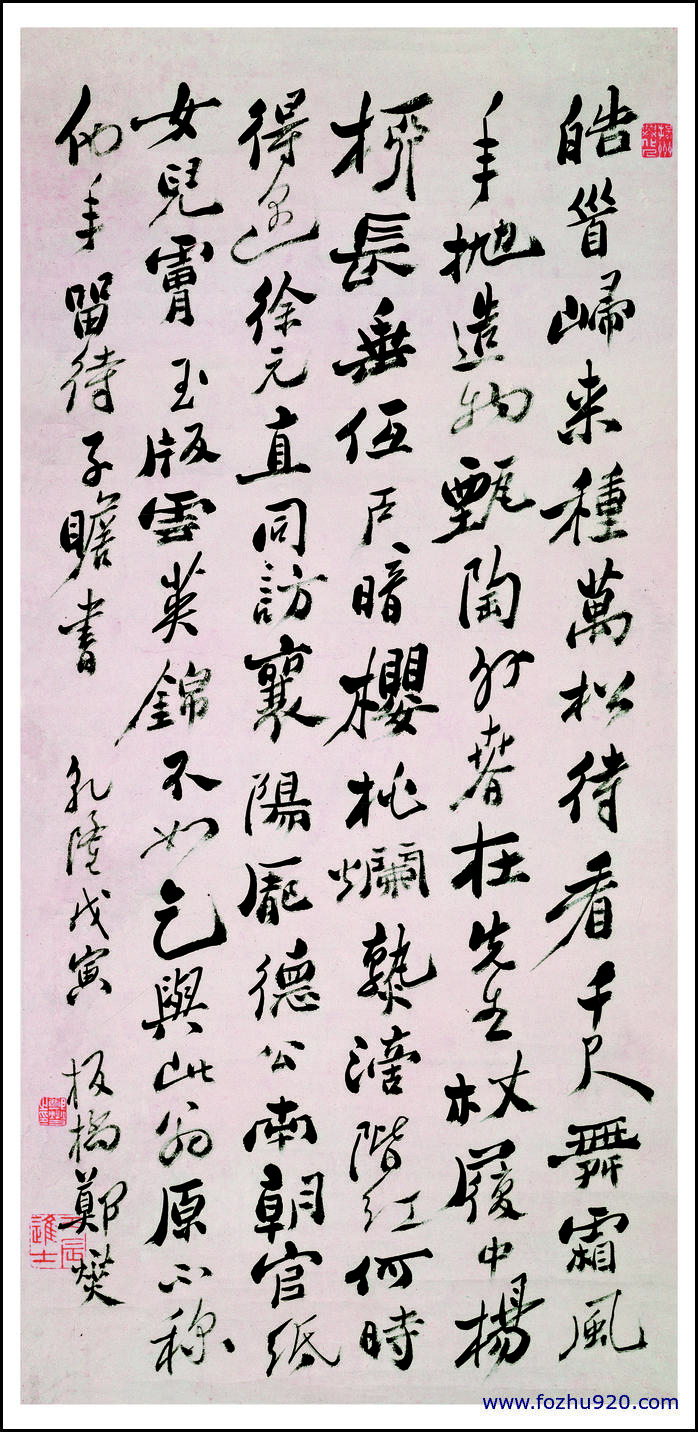 皓首歸来種萬松待看千尺舞霜風
年抛造物甄陶外春在先生杖履中楊
柳長垂低戶暗櫻桃爛熟滴階紅何時
得徐元直同訪襄陽龐德公南朝官紙
女兒膚玉版雲英錦不如乞與此翁原不称
他年留待子瞻書 乾隆戊寅 板橋鄭燮
丙辰進士
www.fozhu920.com